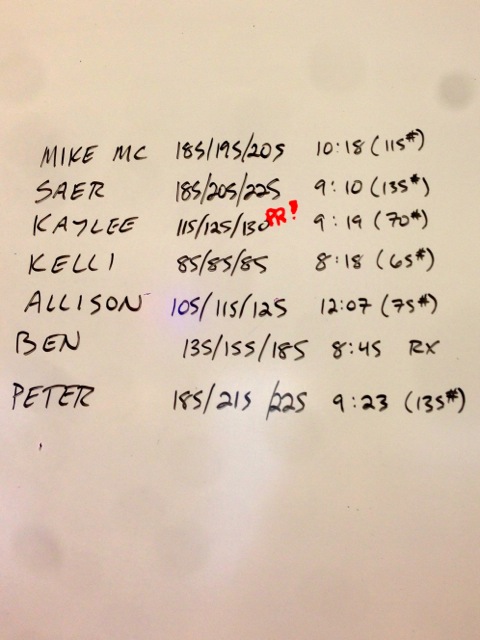 MIKE MC 185/195/205 10:18 (115#)
SAER 185/205/225 9:10 (135#)
KAYLEE 115/125/130 PR! 9:19 (70#)
KELLI 85/85/85 8:18 (65#)
ALLISON 105/115/125 12:07 (75#)
BEN 135/155/185 8:45 RX
PETER 185/215/225 9:23 (135#)